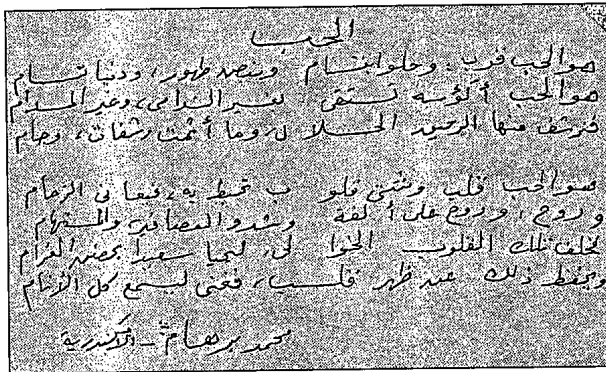 الحب
هو الحب قرب، وحلو ابتسام وبنصر ظهور، ودنيا تسام
هو الحب أكؤسه تستقى لغير الندامى، وغير المدام
فنرشف منها الرحيق الحلال، وما أثمت رشفات، وجام
هو الحب قلب وشتى قلوب تحط به، فيها في الزحام
وروح، وروح على ألفة وشدو العصافير والمستهام
تحلف تلك القلوب الخوالي، ليحيا سعيدا بحضن الغرام
ويحفظ ذلك عن ظهر قلب، فغنى ليسمع كل الأنام
محمد برهام - الإسكندرية